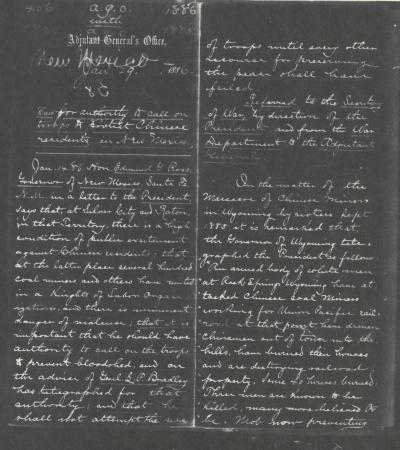 406 A.G.O. 1886
with
Adjutant General's Office,
New Mexico
Jan. 29, 1886.
86
Case for authority to call on
troops to protect Chinese
residents in New Mexico.
Jan. 14. 86 Hon. Edmund G. Ross,
Governor of New Mexico, Santa Fe
N.M. in a letter to the President,
says that at Silver City and Raton,
in that Territory, there is a high
condition of public excitement
against Chinese residents; that
at the latter place several hundred
coal miners and others have united
in a Knights of Labor Organ-
ization, and there is imminent
danger of violence, that it is
important that he should have
authority to call on the troops
to prevent bloodshed, and on
the advice of Genl. L.P. Bradley
has telegraphed for that
authority; and that he
shall not attempt the use
of troops until every other
resource for preserving
the peace shall have
failed.
Referred to the Secretary
of War, by direction of the
President and from the War
Department to the Adjutant
General.
In the matter of the
Massacre of Chinese Miners
in Wyoming by rioters Sept.
1885 it is remarked that
the Governor of Wyoming tele-
graphed the President as follows
"An armed body of white men
at Rock Springs Wyoming have at-
tacked Chinese Coal Miners
working for Union Pacific rail-
road at that point, have driven
Chinamen out of town into the
hills, have burned their houses
and are destroying railroad
property. Some 40 houses burned.
Three men are known to be
killed, many more believed to
be. Mob now preventing